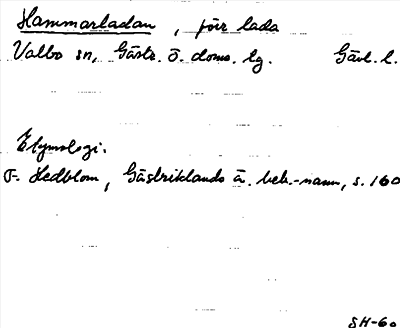 Hammarladan, förr lada
Valbo sn, Gästr. ö. doms. lg. Gävl. l.
Etymologi.
F. Hedblom, Gästriklands ä. beb.-namn, s. 160
SH-60